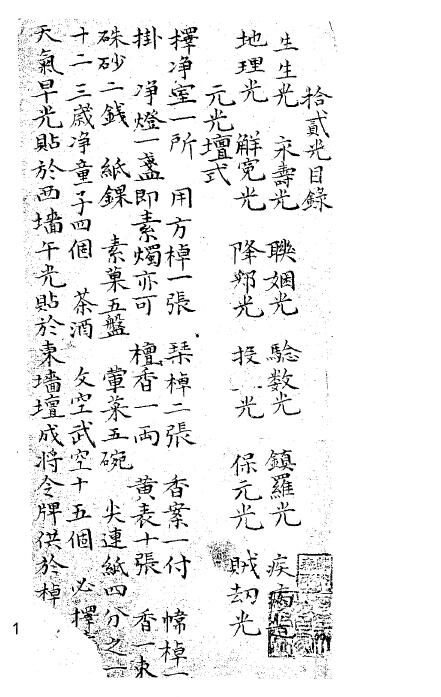 拾貳光目錄
生生光 永壽光 聯姻光 驗数光 鎮羅光 疾病
地理光 解寃光 降邪光 投 光 保元光 賊刼光
元光壇式
擇净室一所 用方棹一張 琹棹二張 香案一付 幃棹一
掛 净燈一盞即素燭亦可 檀香一両 黄表十張 香一束
硃砂二銭 紙錁 素菓五盤 葷菜五碗 尖連紙四分之一
十二三歳净童子四個 茶酒 文空武空十五個 必擇
天氣早光貼於西墻午光貼於東墻壇成将令牌供於棹
1